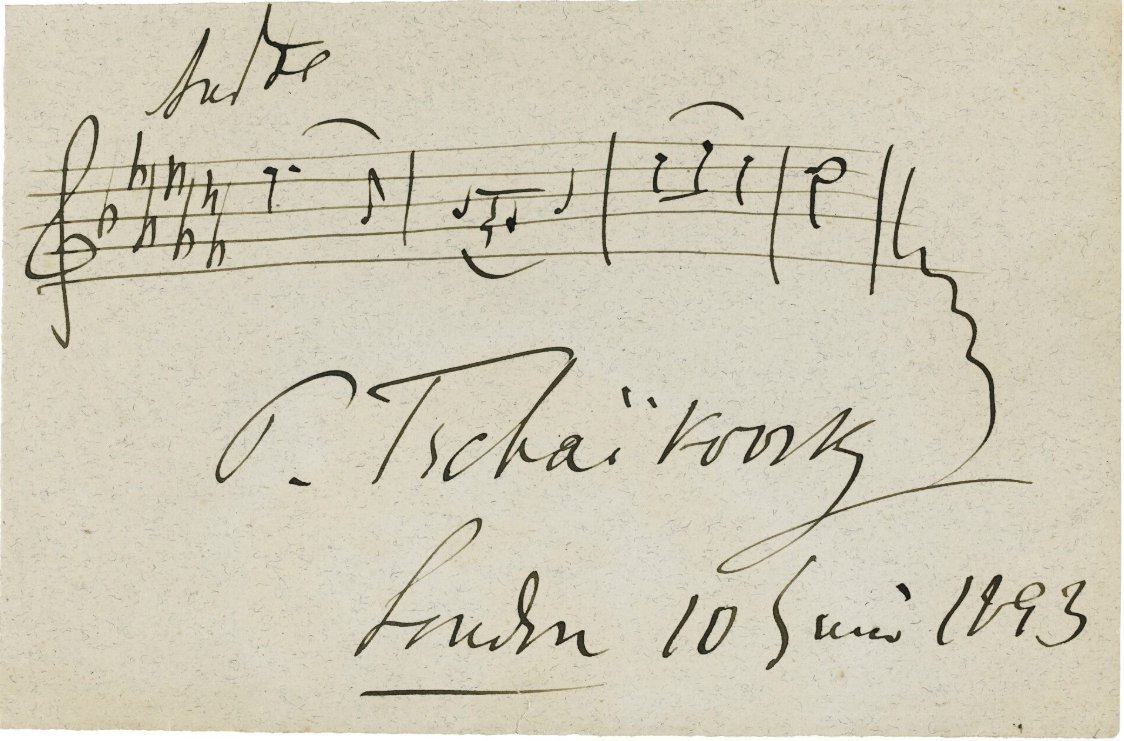 Andte
P. Tschaïkovsky
London 10 Juin 1893